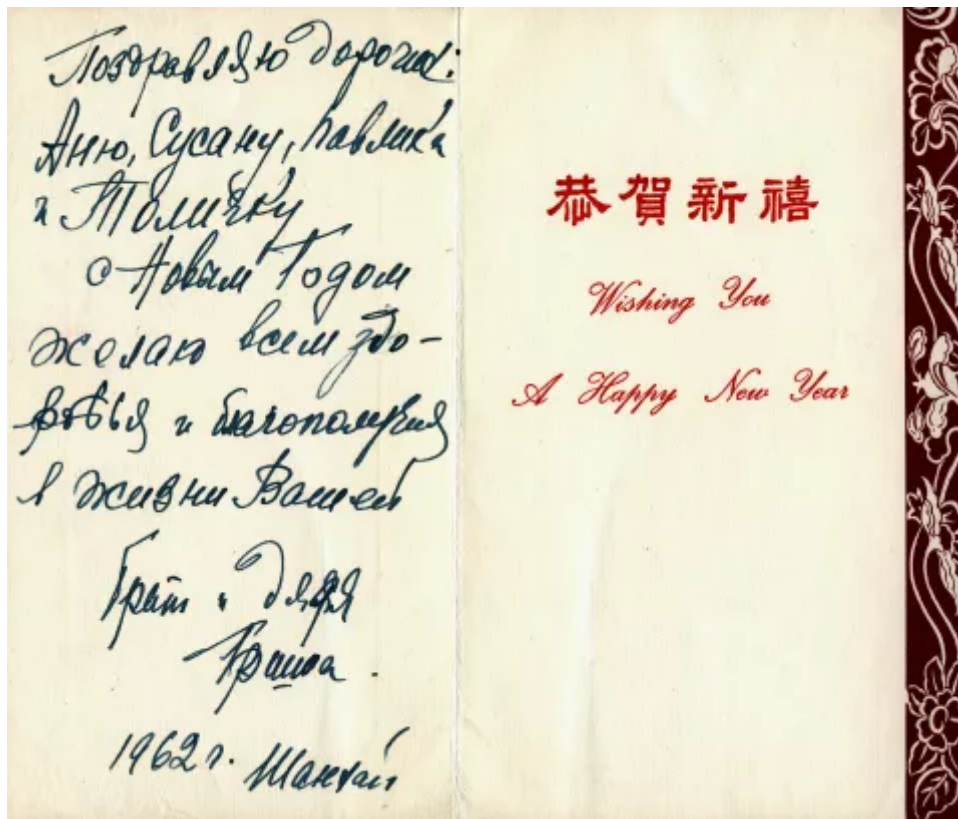 Поздравляю дорогих:
Аню, Сусану, Павлика
и Толичку
с Новым Годом
желаю всем здо-
ровья и благополучия
в жизни Вашей
Брат и дядя
Гриша.
1962 г. Шанхай
恭賀新禧
Wishing You
A Happy New Year